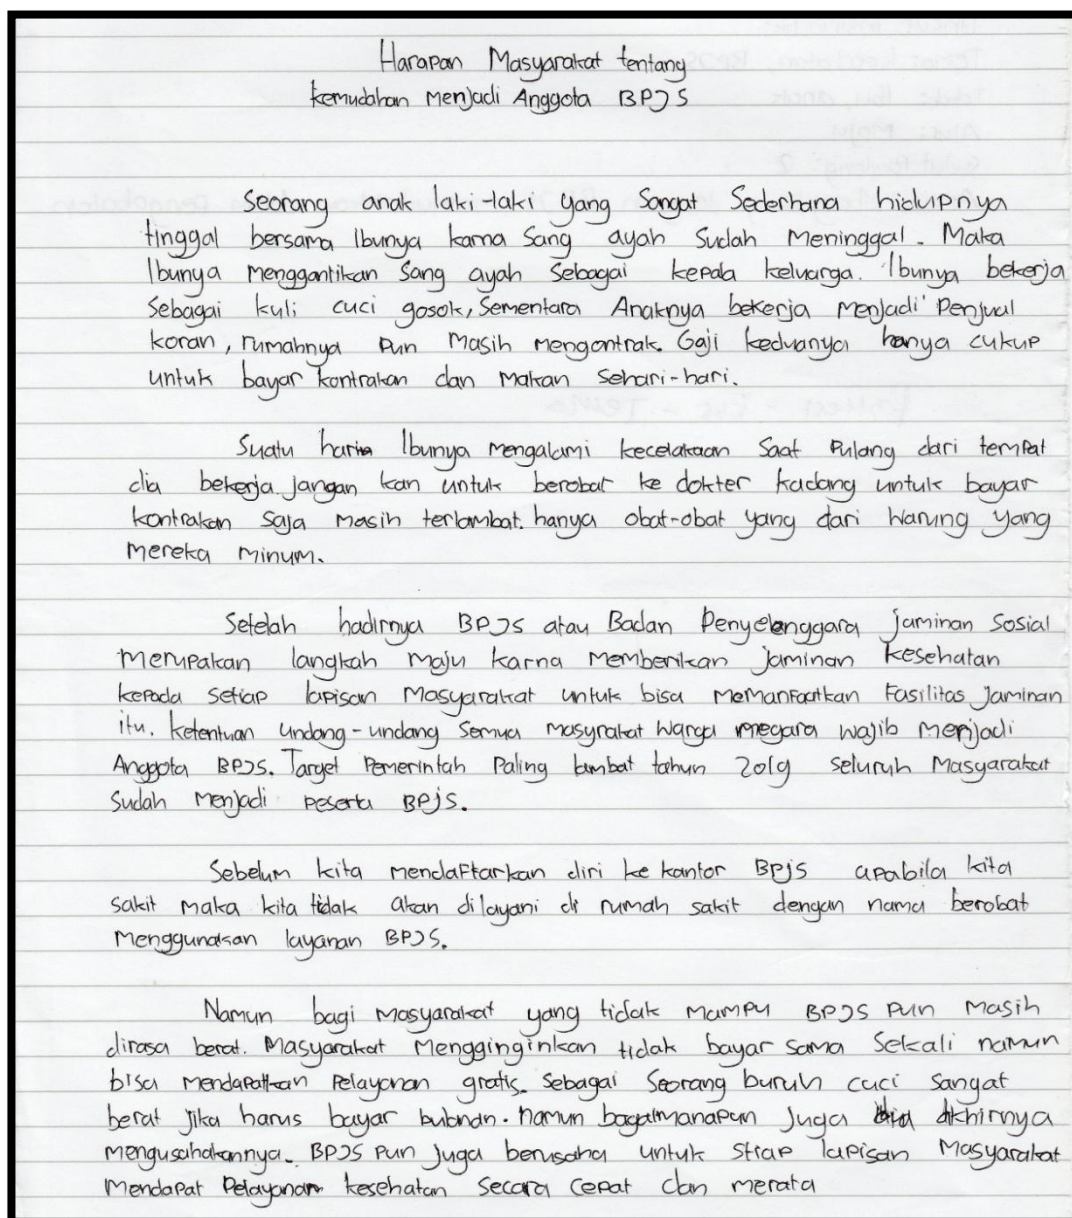 Harapan Masyarakat tentang
kemudahan Menjadi Anggota BPJS
Seorang anak laki-laki yang Sangat Sederhana hidupnya
tinggal bersama Ibunya karna Sang ayah Sudah Meninggal. Maka
Ibunya Menggantikan Sang ayah Sebagai kepala keluarga. Ibunya bekerja
Sebagai kuli cuci gosok, Sementara Anaknya bekerja Menjadi Penjual
koran, rumahnya pun Masih Mengontrak. Gaji keduanya hanya cukup
untuk bayar kontrakan dan Makan Sehari-hari.
Suatu hari Ibunya Mengalami kecelakaan Saat Pulang dari tempat
dia bekerja. jangan kan untuk berobat ke dokter kadang untuk bayar
kontrakan Saja Masih terlambat. hanya obat-obat yang dari Warung yang
Mereka Minum.
Setelah hadirnya BPJS atau Badan Penyelenggara jaminan Sosial
Merupakan langkah Maju karna Memberikan jaminan kesehatan
kepada Setiap lapisan Masyarakat untuk bisa Memanfaatkan Fasilitas Jaminan
itu. ketentuan undang-undang Semua Masyrakat Warga negara wajib Menjadi
Anggota BPJS. Target Pemerintah Paling lambat tahun 2019 Seluruh Masyarakat
Sudah Menjadi Peserta BPJS.
Sebelum kita Mendaftarkan diri ke kantor BPJS apabila kita
sakit Maka kita tidak akan dilayani di rumah sakit dengan nama berobat
Menggunakan layanan BPJS.
Namun bagi Masyarakat yang tidak Mampu BPJS Pun Masih
dirasa berat. Masyarakat Mengginginkan tidak bayar Sama Sekali namun
bisa Mendapatkan Pelayanan gratis. Sebagai Seorang buruh cuci Sangat
berat jika harus bayar bulanan. Namun bagaimanapun Juga akhirnya
Mengusahakannya. BPJS Pun Juga berusaha untuk Stiap lapisan Masyarakat
Mendapat Pelayanan kesehatan Secara Cepat dan Merata